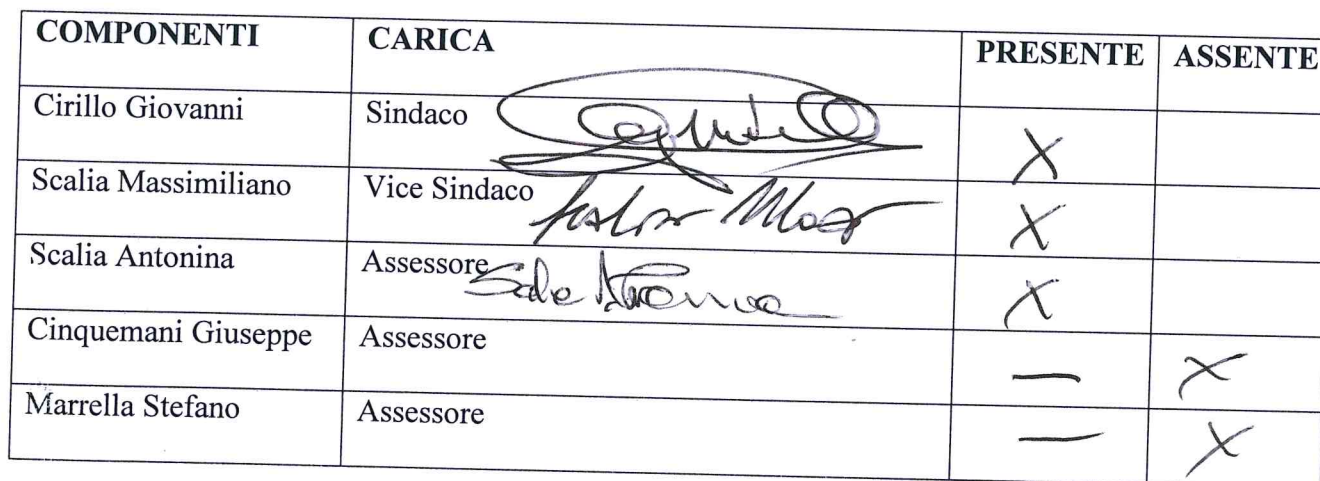 COMPONENTI CARICA PRESENTE ASSENTE
Cirillo Giovanni Sindaco X
Scalia Massimiliano Vice Sindaco X
Scalia Antonina Assessore X
Cinquemani Giuseppe Assessore — X
Marrella Stefano Assessore — X